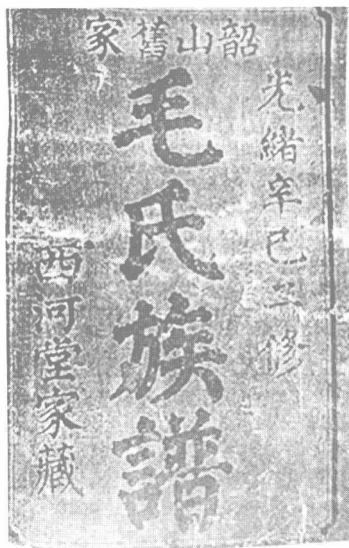 韶山舊家
光緒辛巳二修
毛氏族譜
西河堂家藏